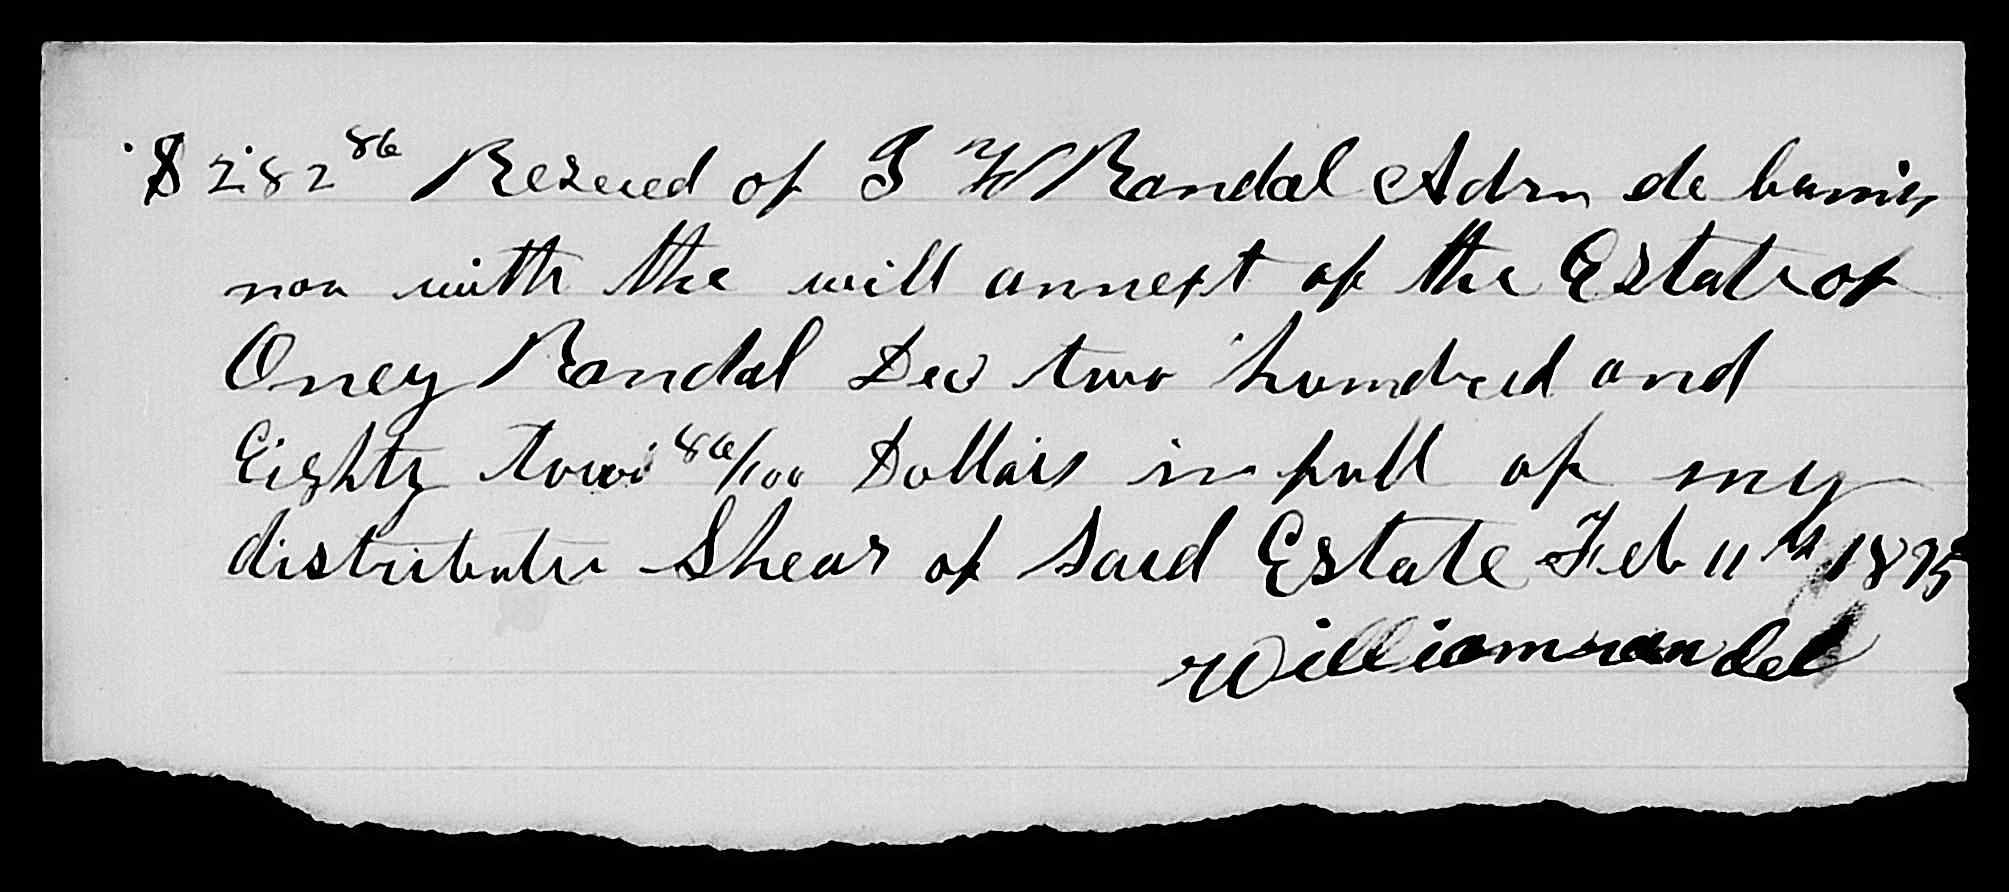 $282 86 Receved of G W Randal Adm de bonis
non with the will annext of the Estate of
Oney Randal Dec two hundred and
Eighty two 86/100 Dollars in full of my
distributive Shear of Said Estate Feb 11th 1875
William randel